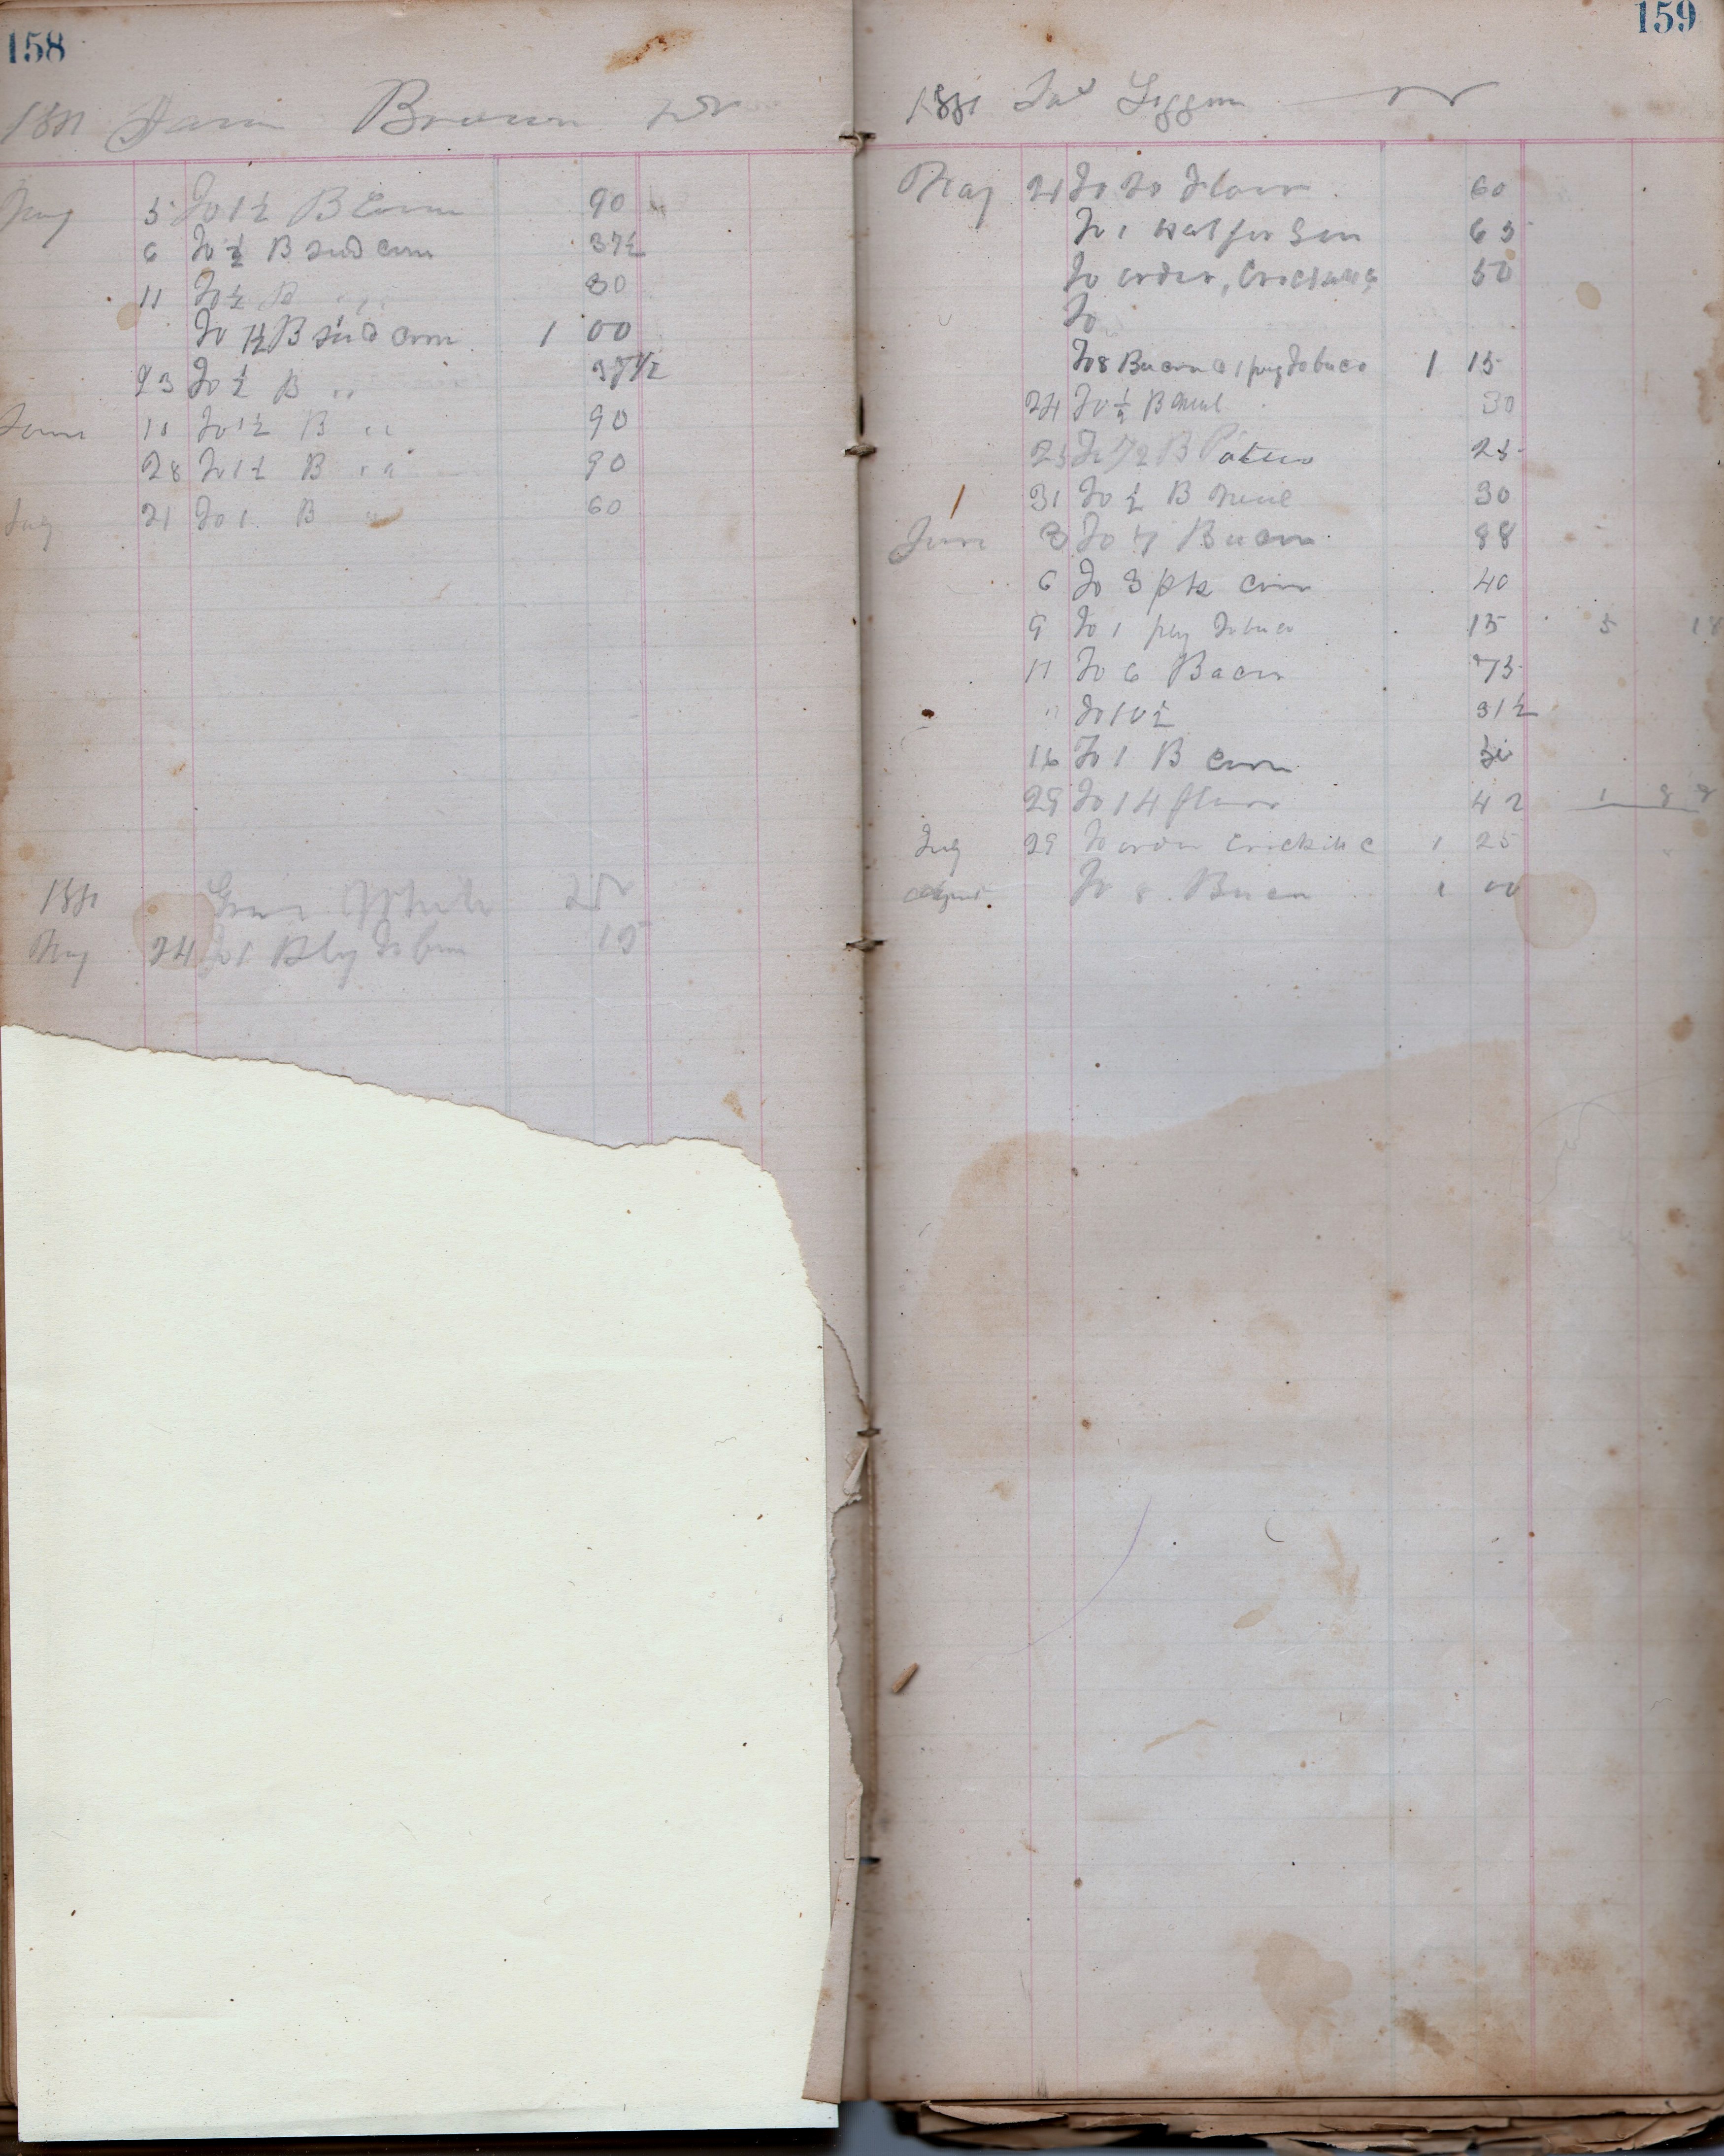 158
1881 Sam Brown Dr
May 5 To 1½ B Corn 90
6 To ½ B seed corn 37½
11 To ½ B " " 30
To 1½ B seed corn 1 00
23 To ½ B " 37½
June 11 To 1½ B " 90
28 To 1½ B " " 90
July 21 To 1 B " 60
1881 White Dr
May 24 To 1 Plg Tobaco 15
159
1881 Jas Liggon Dr
May 21 To 20 Flour 60
To 1 65
To order, 50
To
To 8 Bacon & 1 plug Tobacco 1 15
24 To ½ B meal 30
25 To 1/2 B Potatoes 25
31 To ½ B meal 30
June 3 To 7 Bacon 88
6 To 3 pk corn 40
9 To 1 plg Tobaco 15 5 18
11 To 6 Bacon 75
" To 10½ 31½
16 To 1 B corn
29 To 14 flour 42 1
July 29 To order 1 25
To 8 Bacon 1 00